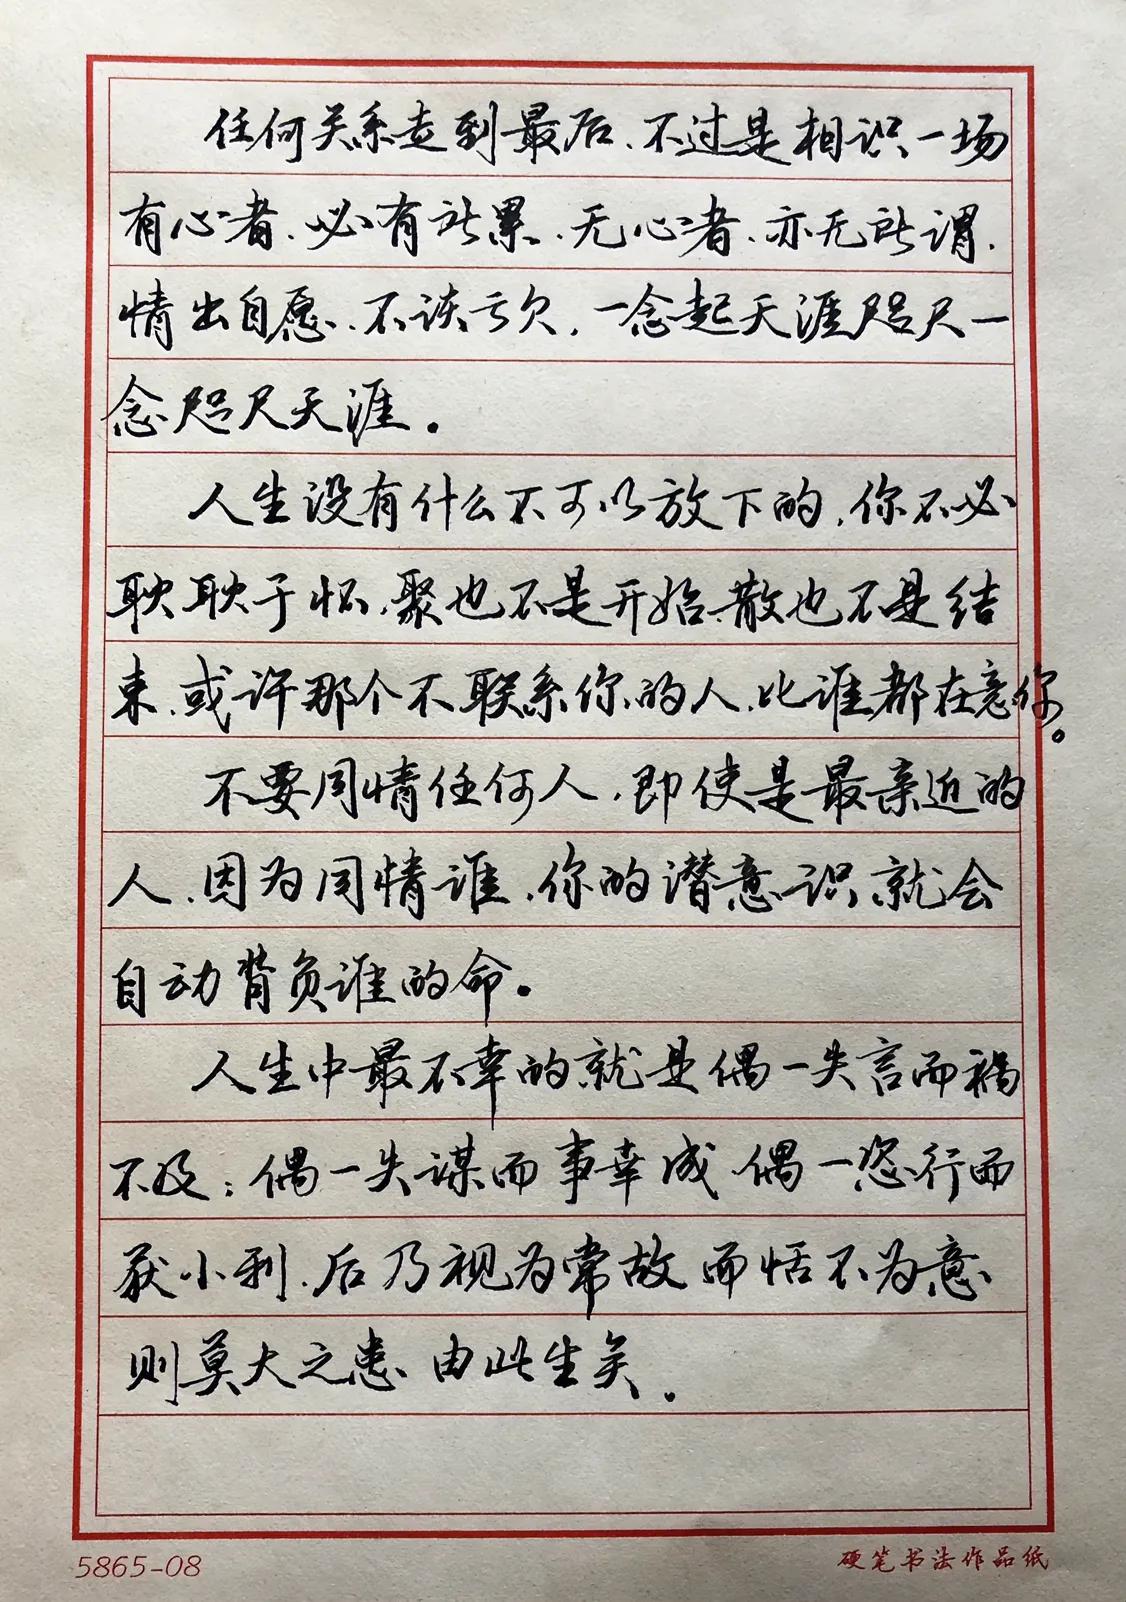 任何关系走到最后、不过是相识一场
有心者、必有所累、无心者、亦无所谓、
情出自愿、不谈亏欠，一念起天涯咫尺一
念咫尺天涯。
人生没有什么不可以放下的，你不必
耿耿于怀，聚也不是开始、散也不是结
束、或许那个不联系你的人、比谁都在意你。
不要同情任何人，即使是最亲近的
人、因为同情谁，你的潜意识就会
自动背负谁的命。
人生中最不幸的就是偶一失言而祸
不及；偶一失谋而事幸成 偶一恣行而
获小利、后乃视为常故而恬不为意
则莫大之患 由此生矣。
5865-08
硬笔书法作品纸